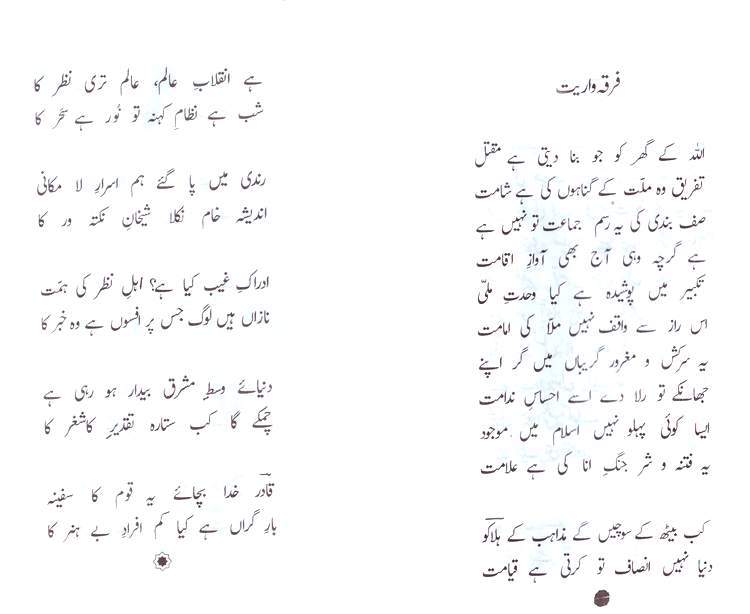 فرقہ واریت
اللہ کے گھر کو جو بنا دیتی ہے مقتل
تفریق وہ ملّت کے گناہوں کی ہے شامت
صف بندی کی یہ رسم جماعت تو نہیں ہے
ہے گرچہ وہی آج بھی آوازِ اقامت
تکبیر میں پوشیدہ ہے کیا وحدتِ ملّی
اس راز سے واقف نہیں ملاّ کی امامت
یہ سرکش و مغرور گریباں میں گر اپنے
جھانکے تو رلا دے اسے احساسِ ندامت
ایسا کوئی پہلو نہیں اسلام میں موجود
یہ فتنہ و شر جنگِ انا کی ہے علامت
کب بیٹھ کے سوچیں گے مذاہب کے ہلاکو
دنیا نہیں انصاف تو کرتی ہے قیامت
ہے انقلابِ عالم، عالم تری نظر کا
شب ہے نظامِ کہنہ تو نُور ہے سحَر کا
رندی میں پا گئے ہم اسرارِ لا مکانی
اندیشہ خام نکلا شیخانِ نکتہ ور کا
ادراکِ غیب کیا ہے؟ اہلِ نظر کی ہمّت
نازاں ہیں لوگ جس پر افسوں ہے وہ خبر کا
دنیائے وسطِ مشرق بیدار ہو رہی ہے
چمکے گا کب ستارہ تقدیرِ کاشغر کا
قادر خدا بچائے یہ قوم کا سفینہ
بارِ گراں ہے کیا کم افرادِ بے ہنر کا